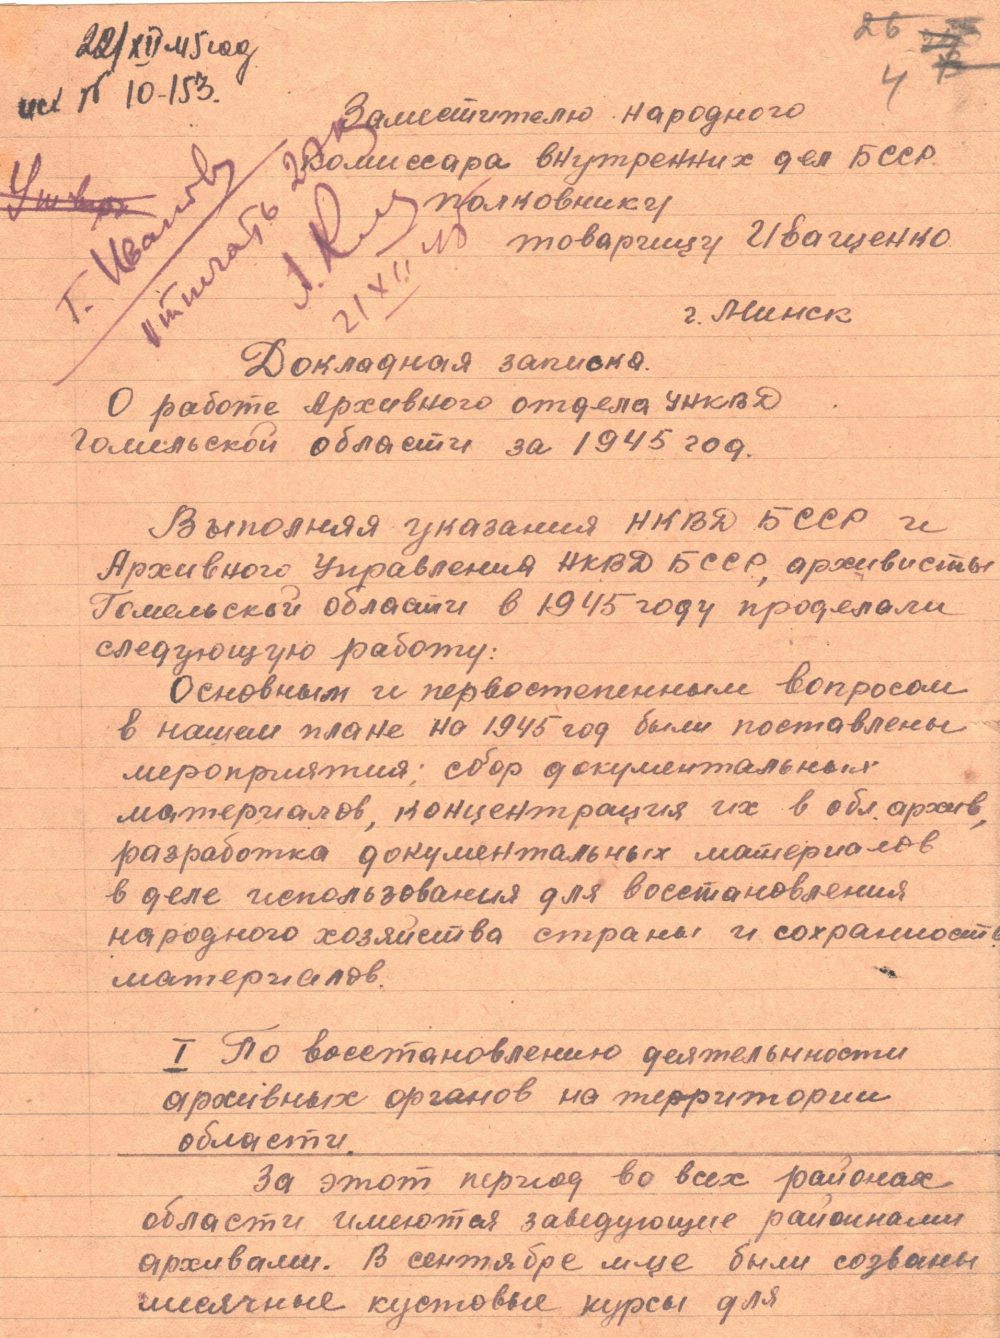 22/XII 45 год
исх № 10-153.
26
4
Заместителю народного
комиссара внутренних дел БССР
полковнику
товарищу Иващенко
г. Минск
Т. Иванову
21 XII 45
Докладная записка.
О работе Архивного отдела УНКВД
Гомельской области за 1945 год.
Выполняя указания НКВД БССР и
Архивного Управления НКВД БССР, архивисты
Гомельской области в 1945 году проделали
следующую работу:
Основным и первостепенным вопросом
в нашем плане на 1945 год были поставлены
мероприятия; сбор документальных
материалов, концентрация их в обл. архив,
разработка документальных материалов
в деле использования для восстановления
народного хозяйства страны и сохранности
материалов.
I По восстановлению деятельности
архивных органов на территории
области.
За этот период во всех районах
области имеются заведующие районнами
архивами. В сентябре м-це были созваны
мисячные кустовые курсы для